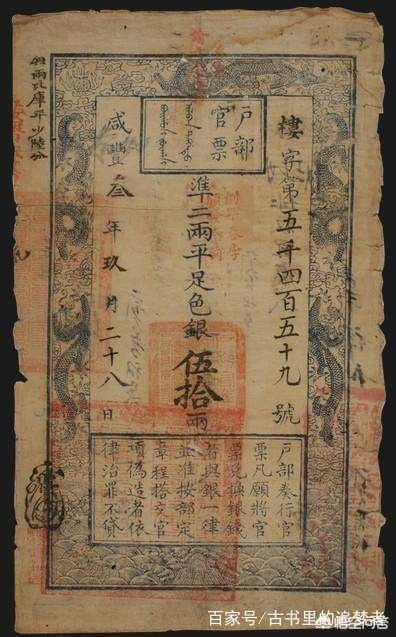 戶部
官票
樓字第五千四百五十九號
准二兩平足色銀伍拾兩
咸豐叁年玖月二十八日
每兩比庫平少陸分
戶部奏行官
票凡願將官
票兌換銀錢
者與銀一律
並准按部定
章程搭交官
項偽造者依
律治罪不貸
悟空问答
百家号/古书里的追梦者